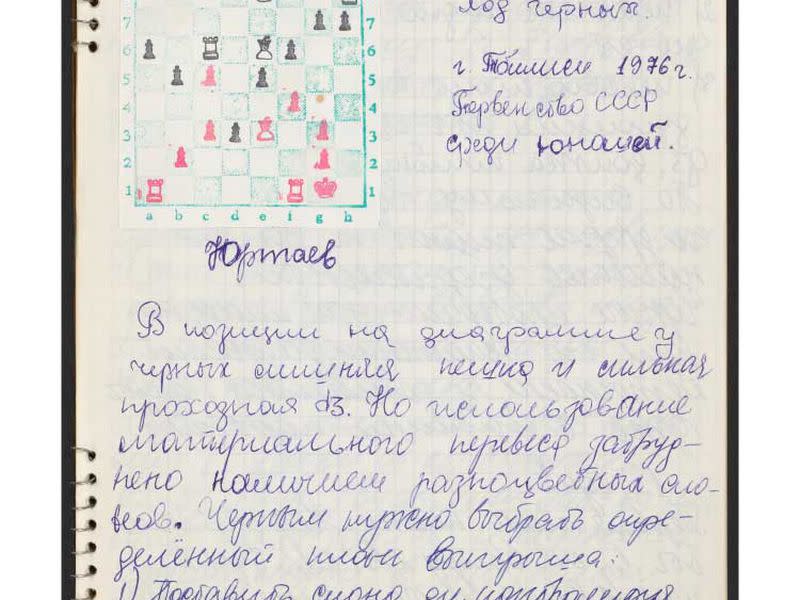 7 7
ход черных.
6 6
5 5
г. Тбилиси 1976 г.
4 4
Первенство СССР
3 3
среди юношей.
2 2
1 1
a b c d e f g h
Юртаев
В позиции на диаграмме у
черных лишняя пешка и сильная
проходная d3. Но использование
материального перевеса забруд-
нено наличием разноцветных сло-
нов. Черным нужно выбрать опре-
делённый план выигрыша:
1) Поставить слона